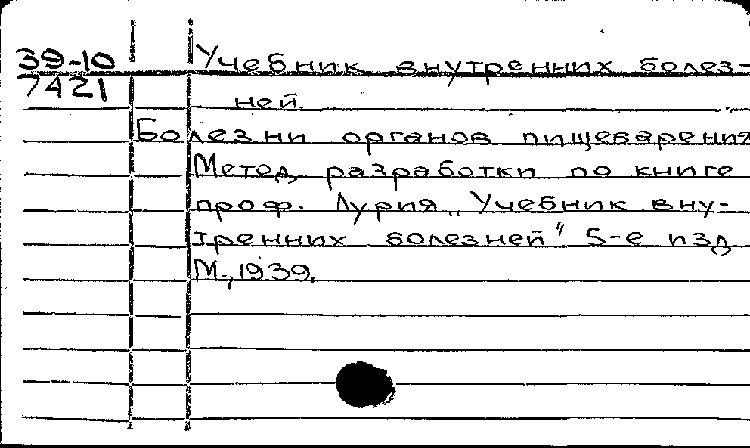 39-10 Учебник внутренних болез-
7421 ней.
Болезни органов пищеварения
Метод. разработки по книге
проф. Лурия „Учебник вну-
тренних болезней" 5-е изд
М., 1939.